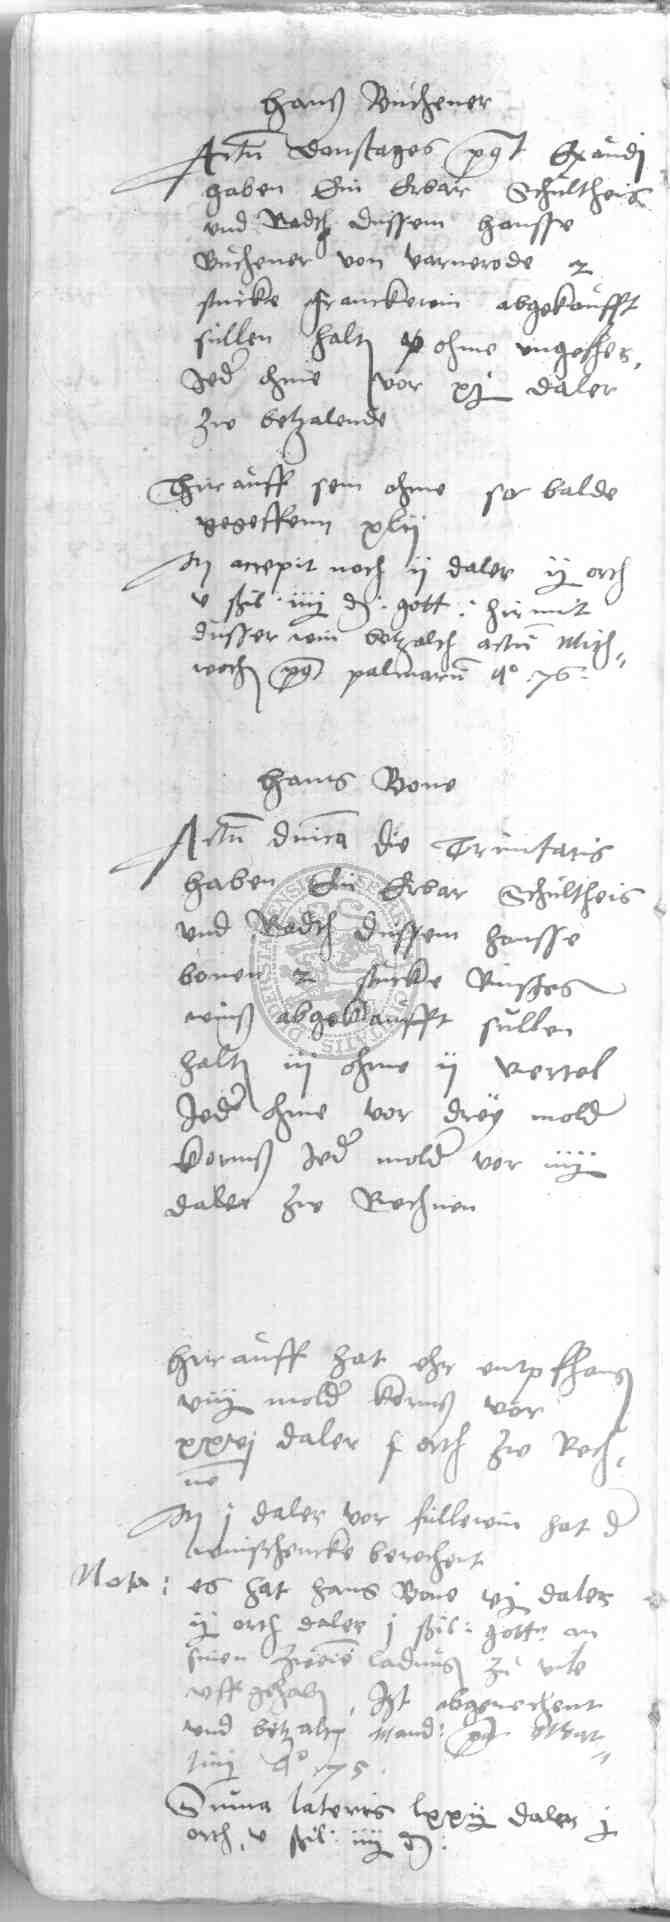 Hans Buchener
Actum Donstages post Exaudj
haben Ein Erbar Schultheis
vnd Radth dussem Hansse
Buchener von varnerode 2
stucke Franckewin abgekaufft
sullen halten ohme vngefher,
Jeder ohme vor xj daler
zw betzalende
Hirauff sein ohme sor balde
gegeffenn xlij
Jtem accepit noch ij daler ij orth
v ßil: iiij d: gott: hirmit
dusser win betzalth actum Mith=
wochen post palmarum Ao 76:
Hans Bone
Actum dominica die Trinitatis
haben Ein Erbar Schultheis
vnd Radth dussem Hansse
bonen 2 stucke
wins abgekaufft sullen
halten iij ohme ij vertel
Jeder ohme vor drey molder
korns Jeder molder vor iiij
daler zw Rechnen
Hirauff hat ehr entpfhangen
viij molder korns vor
xxvj daler j orth zw Rech=
ne
Jtem j daler vor fullewin hat der
winschencke berechent
Nota: es hat Hans Bone vj daler
ij orth daler j ßil: gott: an
sinen ladung zu
vffgehaben, Jst abgerechent
vnd betzalth Mand: post Mar=
tini Ao 75.
Summa lateris lxxij daler j
orth, v ßil: iiij d: